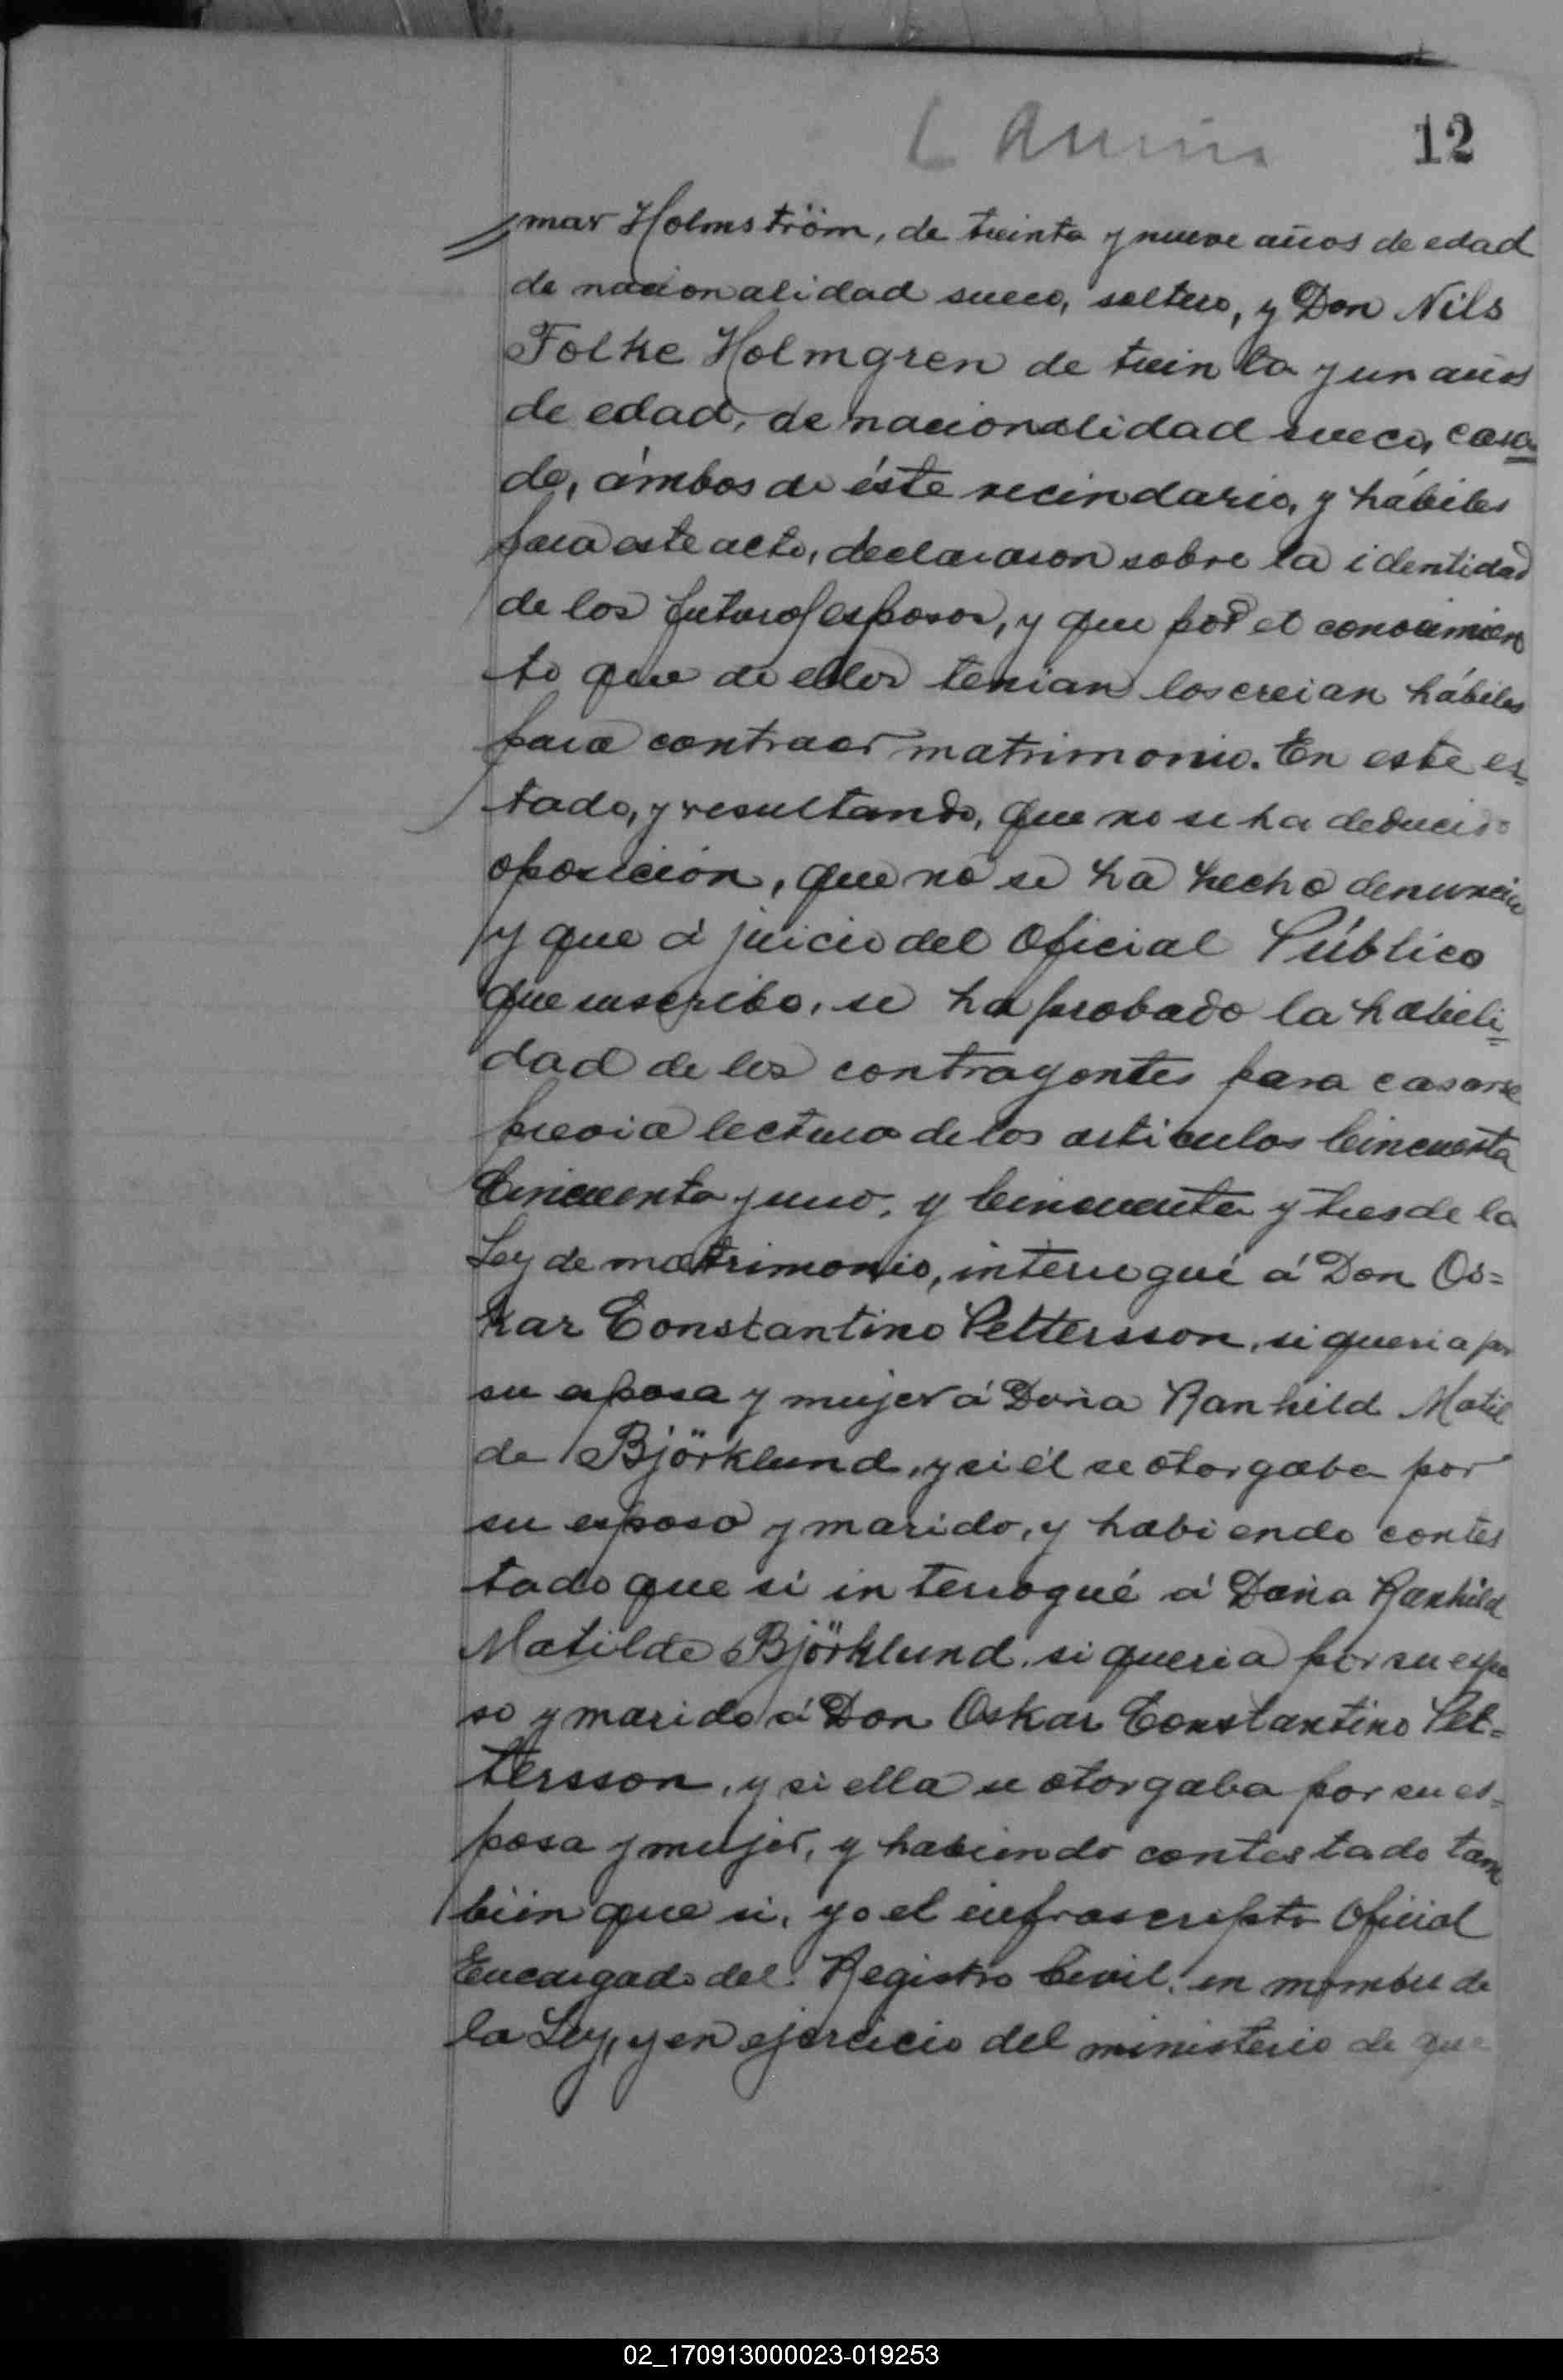 12
mar Holmström, de treinta y nueve años de edad
de nacionalidad sueco, soltero, y Don Nils
Folke Holmgren de treinta y un años
de edad, de nacionalidad sueco, casa
do, ámbos de éste vecindario, y hábiles
para este acto, declararon sobre la identidad
de los futuros esposos, y que por el conocimien
to que de ellos tenian los creian hábiles
para contraer matrimonio. En este es-
tado, y resultando, que no se ha deducido
oposición, que no se ha hecho denuncia
y que á juicio del Oficial Público
que suscribo, se ha probado la habili=
dad de los contrayentes para casarse
previa lectura de los articulos Cincuenta
Cincuenta y uno, y Cincuenta y tres de la
Ley de matrimonio, interrogué á Don Os=
kar Constantino Pettersson, si queria por
su esposa y mujer á Doña Ranhild Matil
de Björklund, y si él se otorgaba por
su esposo y marido, y habiendo contes
tado que si interrogué á Doña Ranhild
Matilde Björklund si queria por su espo
so y marido á Don Oskar Constantino Pet=
tersson, y si ella se otorgaba por su es-
posa y mujer, y habiendo contestado tam
bién que si, yo el infrascripto Oficial
Encargado del Registro Civil, en nombre de
la Ley, y en ejercicio del ministerio de que
02_170913000023-019253